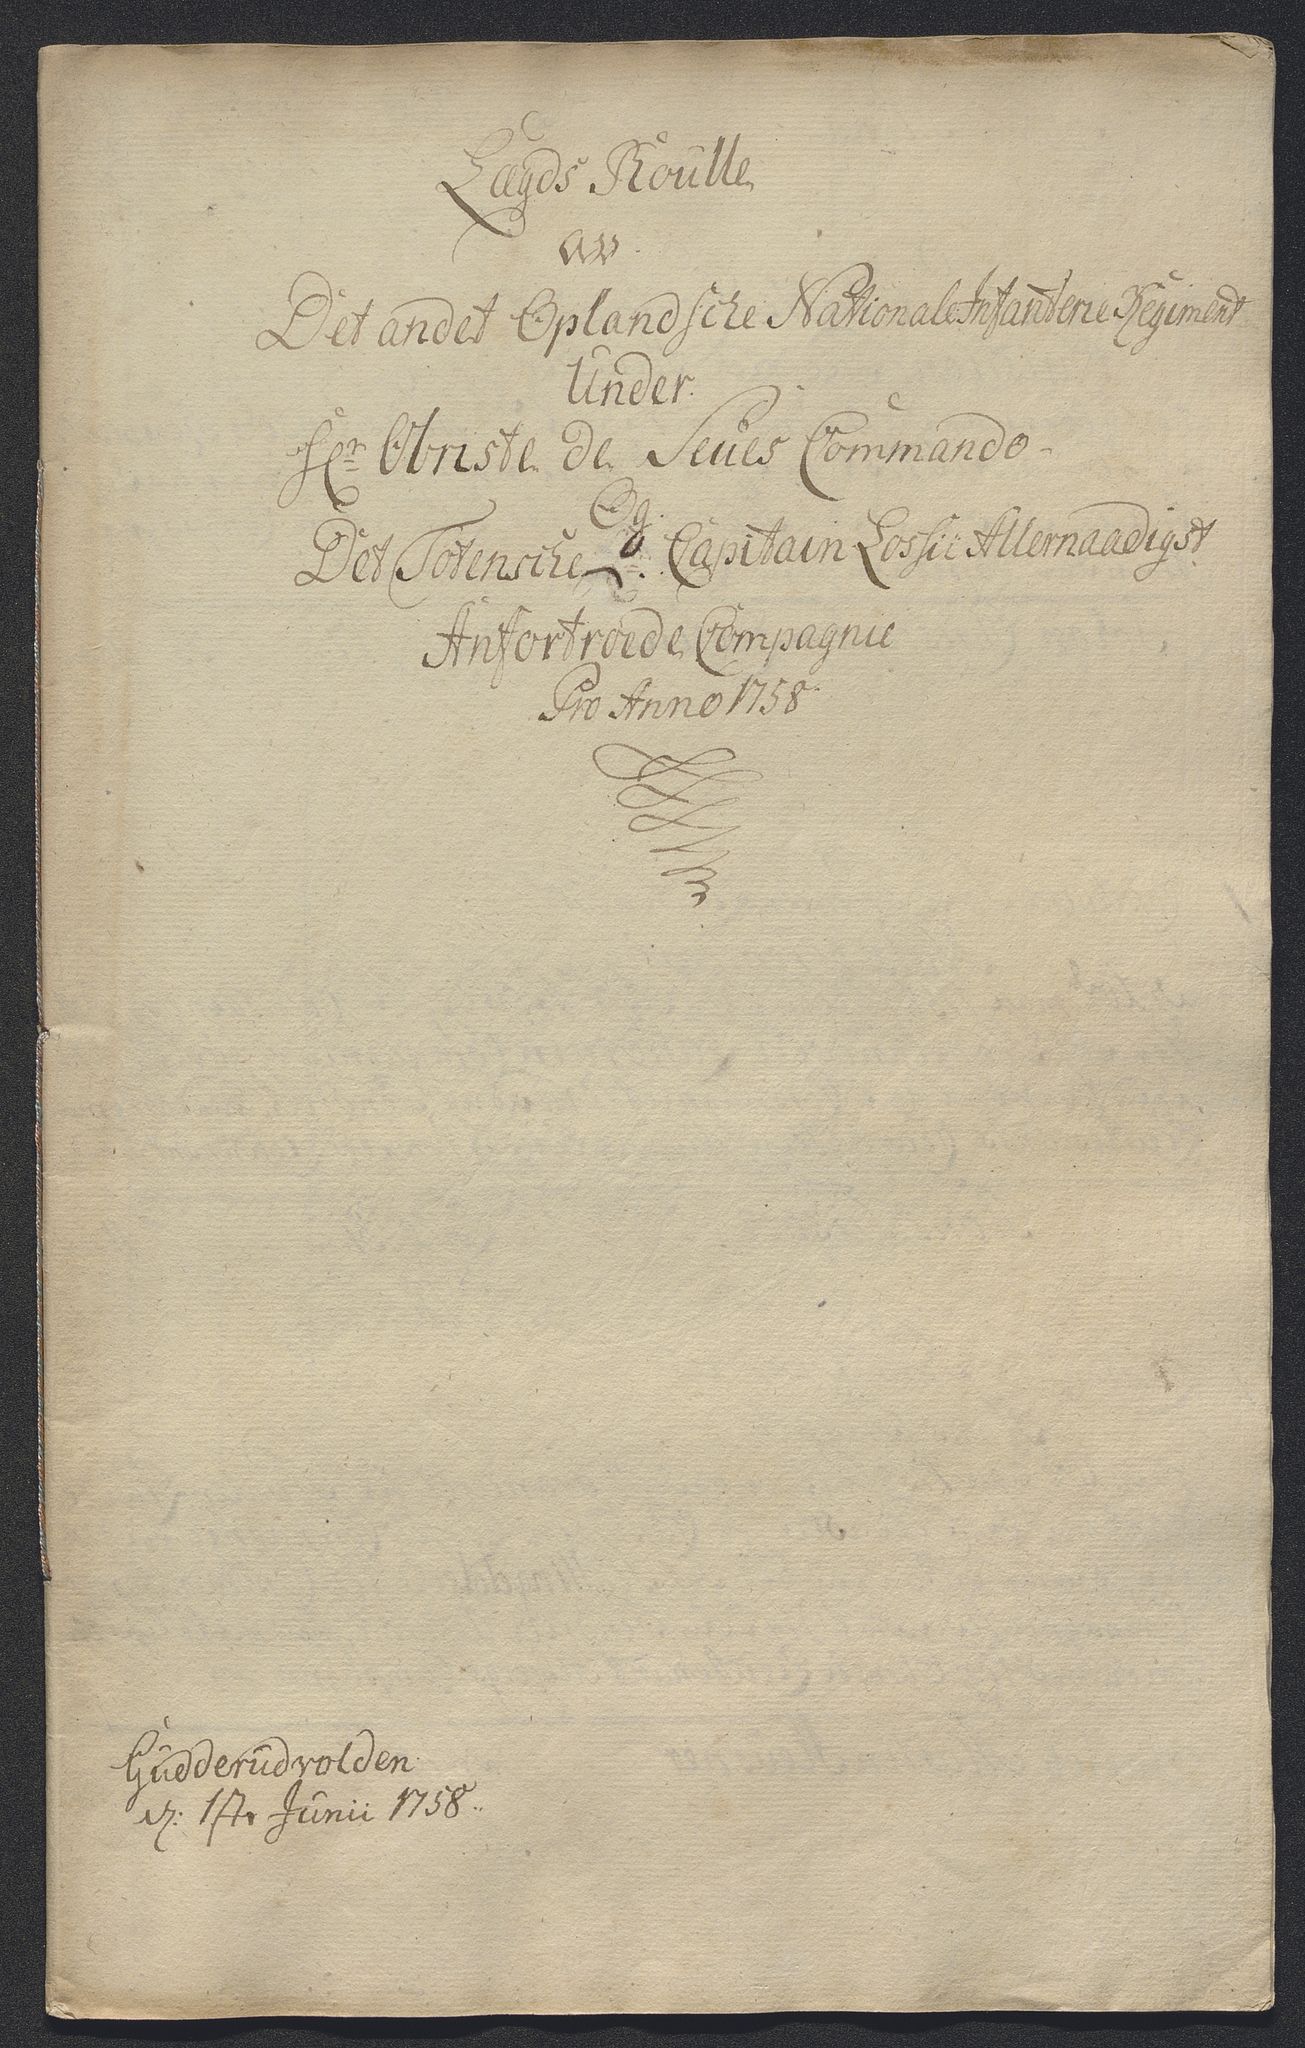 Lægds Roulle
av
Det andet Oplandsche Nationale Infanterie Regiment
Under
Hr. Obriste de Seues Commando
Og
Det Totensche Capitain Lossii Allernaadigst
Anfortroede Compagnie
Pro Anno 1758
Gudderudvolden
d. 1ste Junii 1758